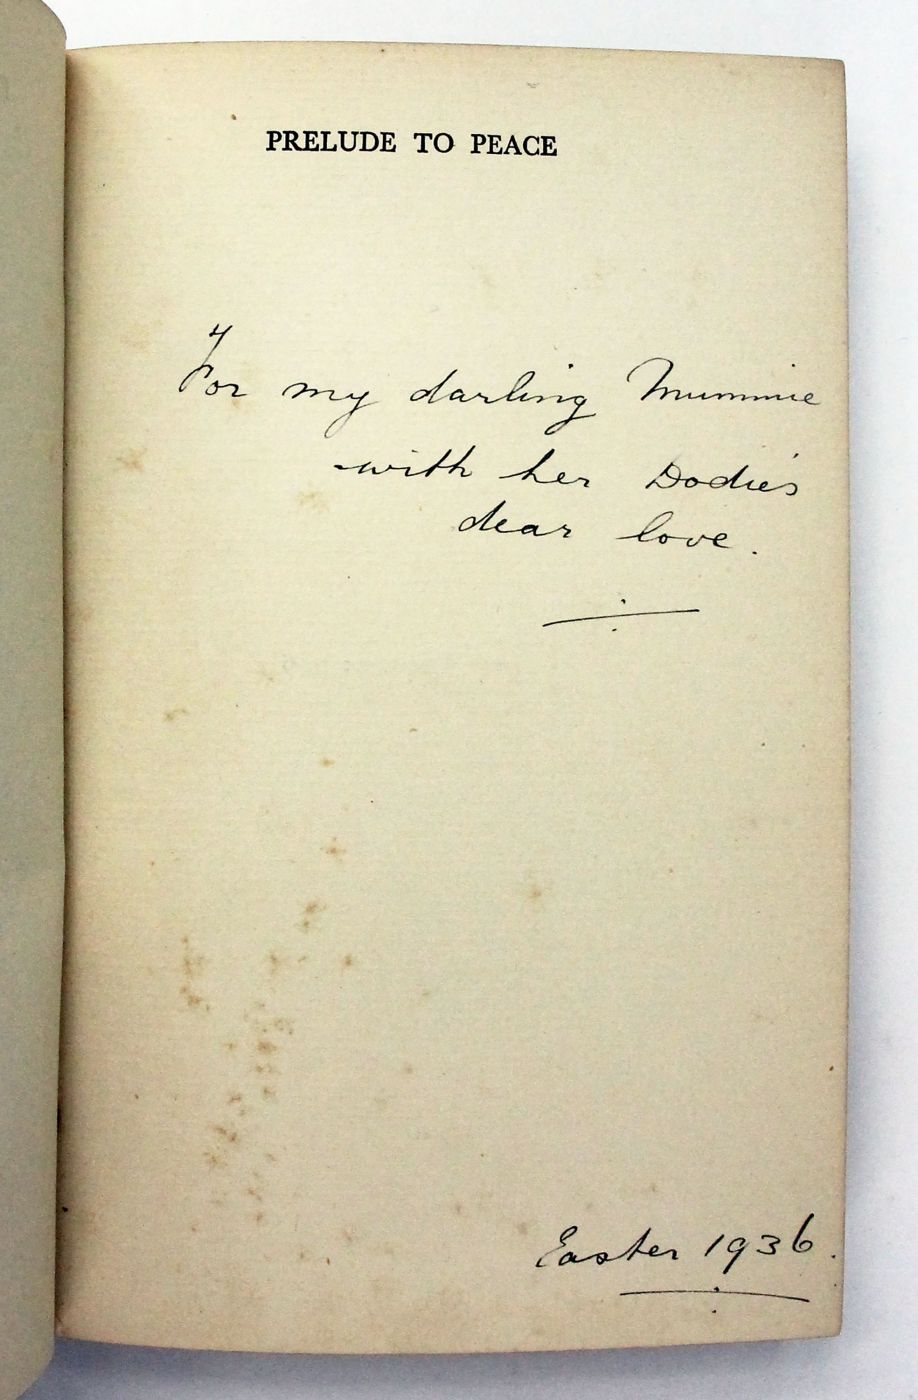 PRELUDE TO PEACE
For my darling Mummie
-with her Dodie's
dear love.
Easter 1936.